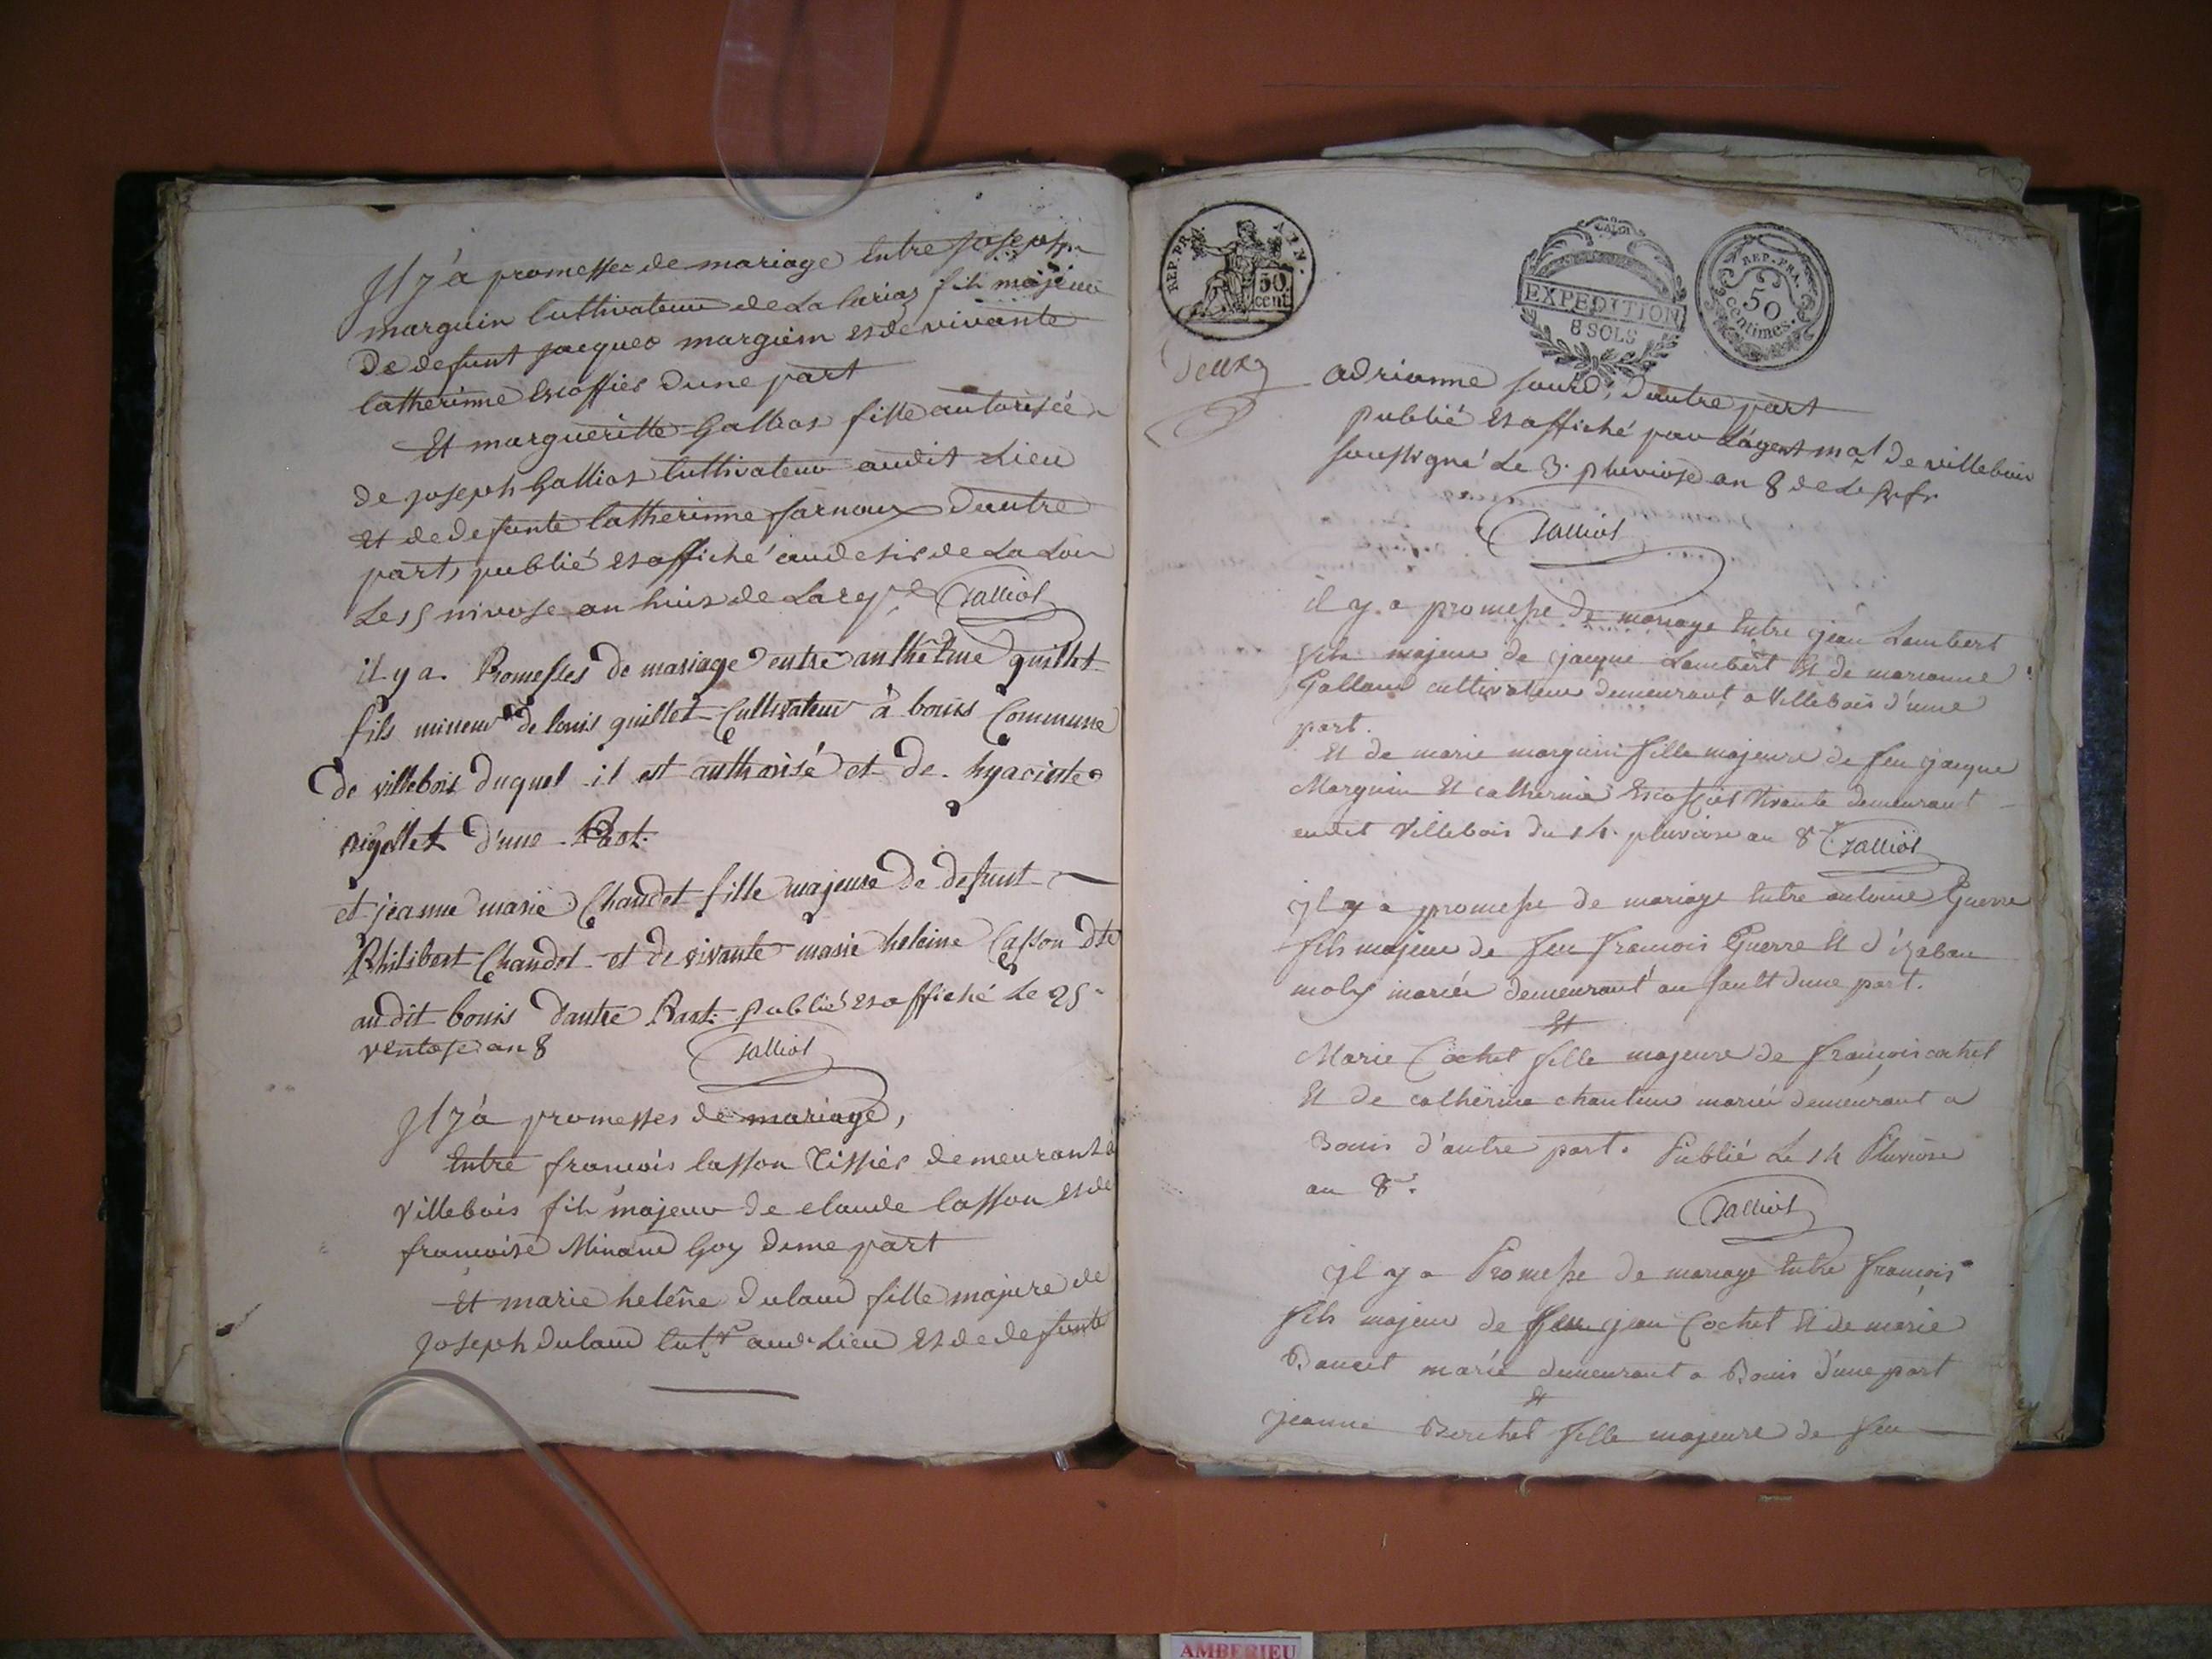 Il y a promesses de mariage entre joseph
marguin Cultivateur de La fils majeur
De defunt jacques marguin et de vivante
Catherinne Escoffier dune part
Et margueritte Gallias fille autorisée
de joseph Gallias Cultivateur audit Lieu
et de defunte Catherinne farnoux Dautre
part, publié et affiché au desir de La Loi
Le 15 nivose an huit de La rep.e Galliot
il y a Promesses de mariage entre anthelme guillet
fils mineur de louis guillet Cultivateur à bouis Commune
de villebois duquel il est authorisé et de hyacinte
rigollet d'une Part.
et jeanne marie Chaudet fille majeure de defunt
Philibert Chaudet et de vivante marie heleine Casson dts
audit bouis d'autre Part. publié et affiché Le 25
ventose an 8 Galliot
Il y a promesses de mariage,
Entre francois Casson Tissier demeurant à
villebois fils majeur de claude Casson et de
francoise Minand Goy dune part
Et marie helêne Dulaud fille majeure de
joseph dulaud Cult.r aud. Lieu et de defunte
REP. FRA. AIN.
50 cent
EXPEDITION
8 SOLS
REP. FRA.
50
centimes.
Deux
adrianne Sourd, Dautre part
publié et affiché par L'agent mal de villebois
soussigné Le 3. pluviose an 8 de La Rep. fr
Galliot
il y a promesse de mariage Entre jean Lambert
fils majeur de jacque Lambert Et de marianne
Galland cultivateur demeurant a Villebois d'une
part.
Et de marie marguin fille majeure de feu jacque
Marguin Et catherine Escoffier vivante demeurant
audit Villebois du 14. pluviose an 8 Galliot
Il y a promesse de mariage Entre antoine Guerre
fils majeur de feu francois Guerre Et d'izabau
moly mariés demeurant au Sault dune part.
Et
Marie Cochet fille majeure de francois cochet
Et de catherine mariés demeurant a
Bouis d'autre part. Publié Le 14 Pluviose
an 8.
Galliot
Il y a Promesse de mariage Entre francois
fils majeur de feu jean Cochet Et de marie
mariés demeurant a Bouis d'une part
Et
jeanne Berchet fille majeure de feu
AMBERIEU